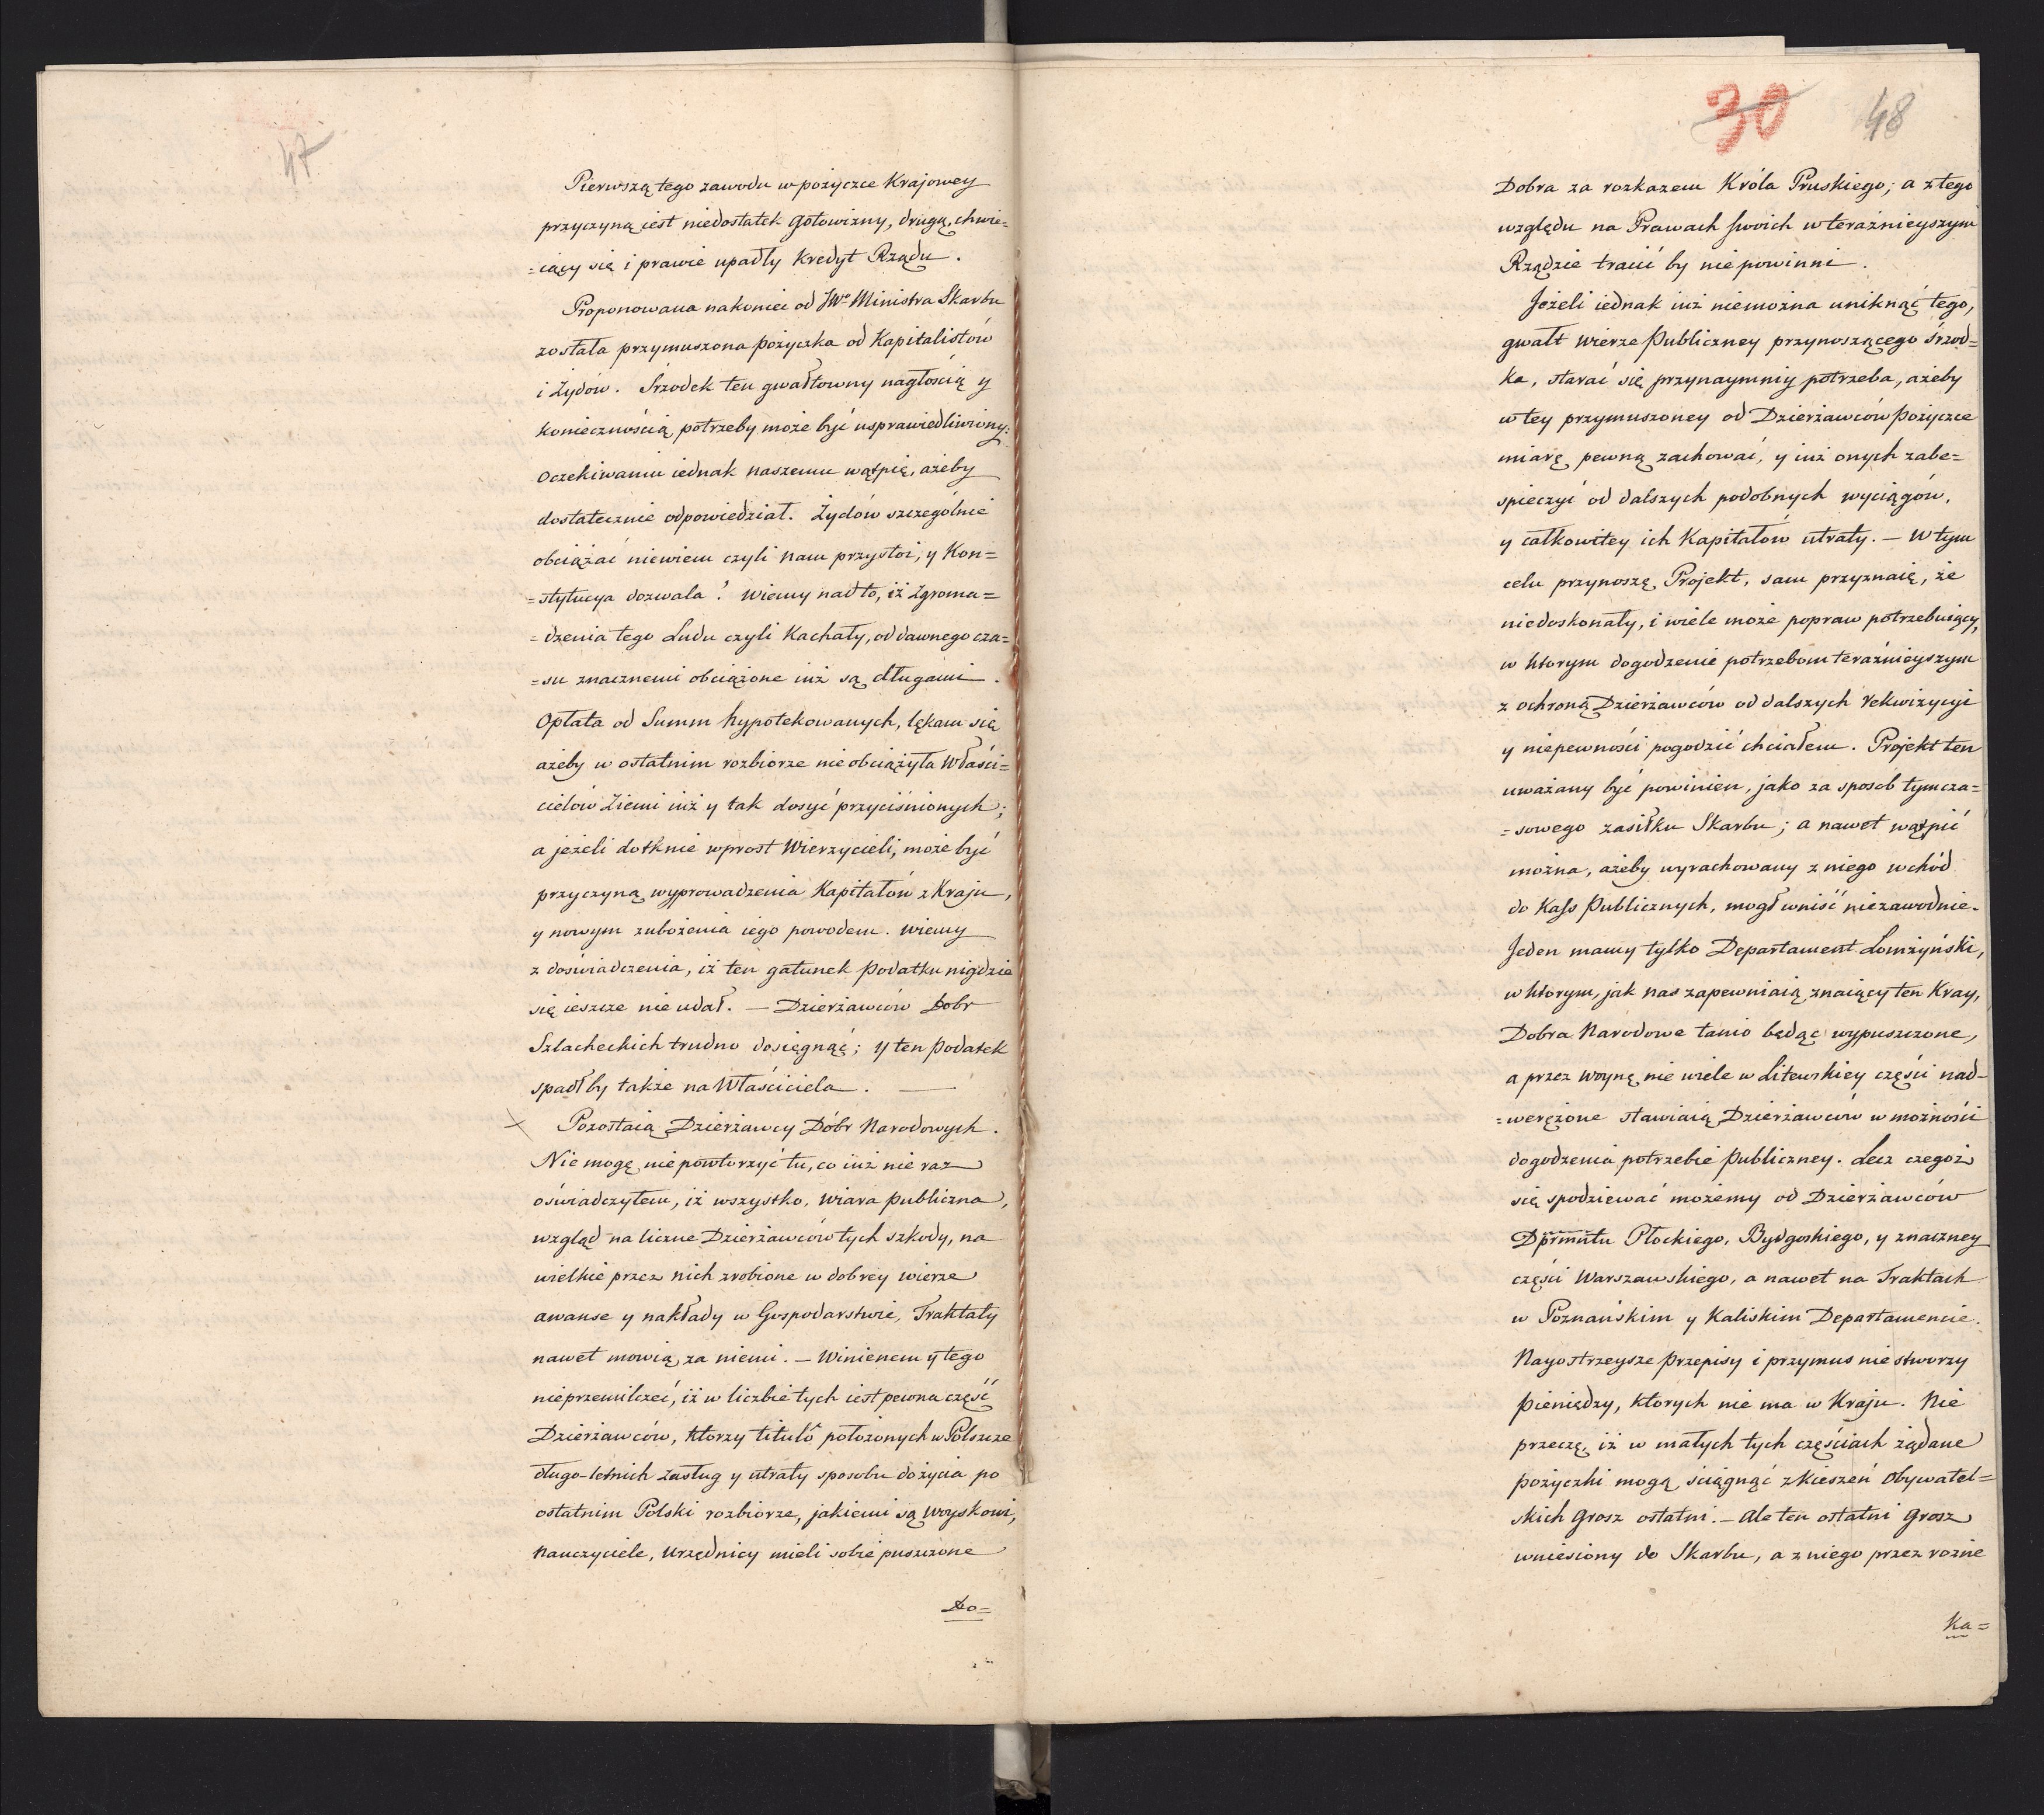 47
Pierwszą tego zawodu w pożyczce Krajowey
przyczyną iest niedostatek Gotowizny, drugą, chwie=
=iący się i prawie upadły Kredyt Rządu.
Proponowana nakoniec od JWo Ministra Skarbu
została przymuszona pożyczka od Kapitalistów
i Żydów. Srzodek ten gwałtowny nagłością y
koniecznością potrzeby może być usprawiedliwiony:
Oczekiwaniu iednak naszemu wątpię, ażeby
dostatecznie odpowiedział. Żydów szczególnie
obciążać niewiem czyli nam przystoi, y Kon=
=stytucya dozwala? Wiemy nadto, iż Zgroma=
=dzenia tego Ludu czyli Kachały, od dawnego cza=
=su znacznemi obciążone iuż są długami.
Opłata od Summ hypotekowanych, lękam się
ażeby w ostatnim rozbiorze nie obciążyła Właści=
cielów Ziemi iuż y tak dosyć przyciśnionych;
a jeżeli dotknie wprost Wierzycieli, może być
przyczyną wyprowadzenia Kapitałów z Kraju,
y nowym zubożenia iego powodem. Wiemy
z doświadczenia, iż ten gatunek Podatku nigdzie
się ieszcze nie udał. — Dzierżawców Dobr
Szlacheckich trudno dosięgnąć; y ten Podatek
spadłby także na Właściciela. —
Pozostaią Dzierżawcy Dóbr Narodowych.
Nie mogę nie powtorzyć tu, co iuż nie raz
oświadczyłem, iż wszystko, Wiara Publiczna,
wzgląd na liczne Dzierżawców tych szkody, na
wielkie przez nich zrobione w dobrey wierze
awanse y nakłady w Gospodarstwie, Traktaty
nawet mowią za niemi. — Winienem y tego
nieprzemilczeć, iż w liczbie tych iest pewna część
Dzierżawców, którzy titulô położonych w Polszcze
długo-letnich Zasług y utraty sposobu do życia po
ostatnim Polski rozbiorze, jakiemi są Woyskowi,
Nauczyciele, Urzędnicy mieli sobie puszczone
Do=
30 48
Dobra za rozkazem Króla Pruskiego; a z tego
względu na Prawach swoich w teraźnieyszym
Rządzie tracić by nie powinni.
Jeżeli iednak iuż niemożna uniknąć tego,
gwałt Wierze Publiczney przynoszącego śrzod=
ka, starać się przynaymniy potrzeba, ażeby
w tey przymuszoney od Dzierżawców Pożyczce
miarę pewną zachować, y iuż onych zabe=
spieczyć od dalszych podobnych wyciągów,
y całkowitey ich Kapitałów utraty. — W tym
celu przynoszę Projekt, sam przyznaię, że
niedoskonały, i wiele może popraw potrzebuiący,
w którym dogodzenie potrzebom teraźnieyszym
z ochroną Dzierżawców od dalszych rekwizycyi
y niepewności pogodzić chciałem. Projekt ten
uważany być powinien, jako za sposob tymcza=
=sowego zasiłku Skarbu; a nawet wątpić
można, ażeby wyrachowany z niego wchód
do Kass Publicznych, mogł wniść niezawodnie.
Jeden mamy tylko Departament Łomżyński,
w którym, jak nas zapewniaią znaiący ten Kray,
Dobra Narodowe tanio będąc wypuszczone,
a przez Woynę nie wiele w Litewskiey części nad=
=werężone stawiaią Dzierżawców w możności
dogodzenia potrzebie Publiczney. Lecz czegoż
się spodziewać możemy od Dzierżawców
Dprmntu Płockiego, Bydgoskiego, y znaczney
części Warszawskiego, a nawet na Traktach
w Poznańskim y Kaliskim Departamencie.
Nayostrzeysze Przepisy i przymus nie stworzy
Pieniędzy, których nie ma w Kraju. Nie
przeczę, iż w małych tych częściach żądane
pożyczki mogą ściągnąć z Kieszeń Obywatel=
skich Grosz ostatni. — Ale ten ostatni Grosz
wniesiony do Skarbu, a z niego przez rożne
Ka=